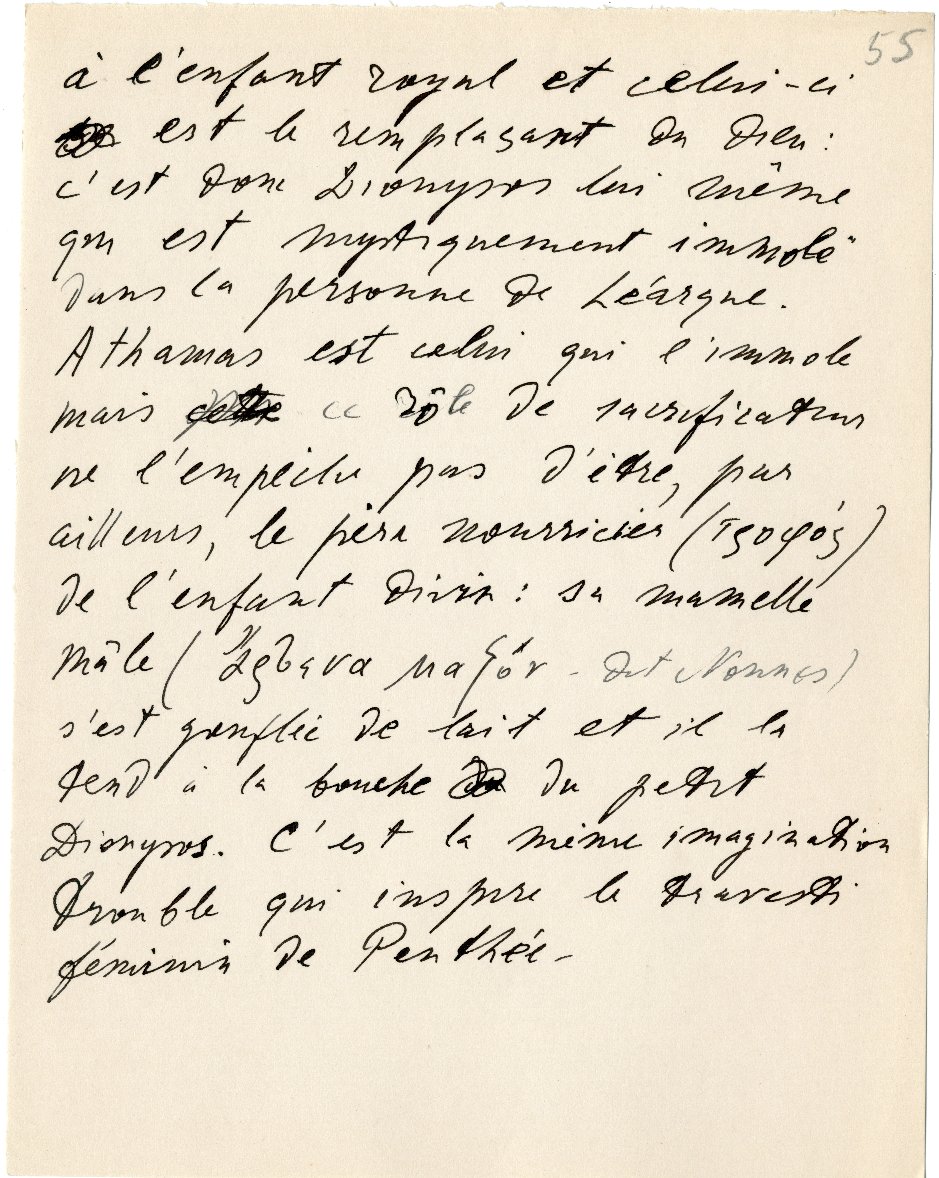 55
à l'enfant royal et celui-ci
est le remplaçant du Dieu :
c'est donc Dionysos lui même
qui est mystiquement immolé
dans la personne de Léarque.
Athamas est celui qui l'immole
mais cette ce rôle de sacrificateur
ne l'empêche pas d'être, par
ailleurs, le père nourricier (τροφός)
de l'enfant divin : sa mamelle
mâle ( μαζόν - dit Nonnos)
s'est gonflée de lait et il la
tend à la bouche du petit
Dionysos. C'est la même imagination
trouble qui inspire le travesti
féminin de Penthée -